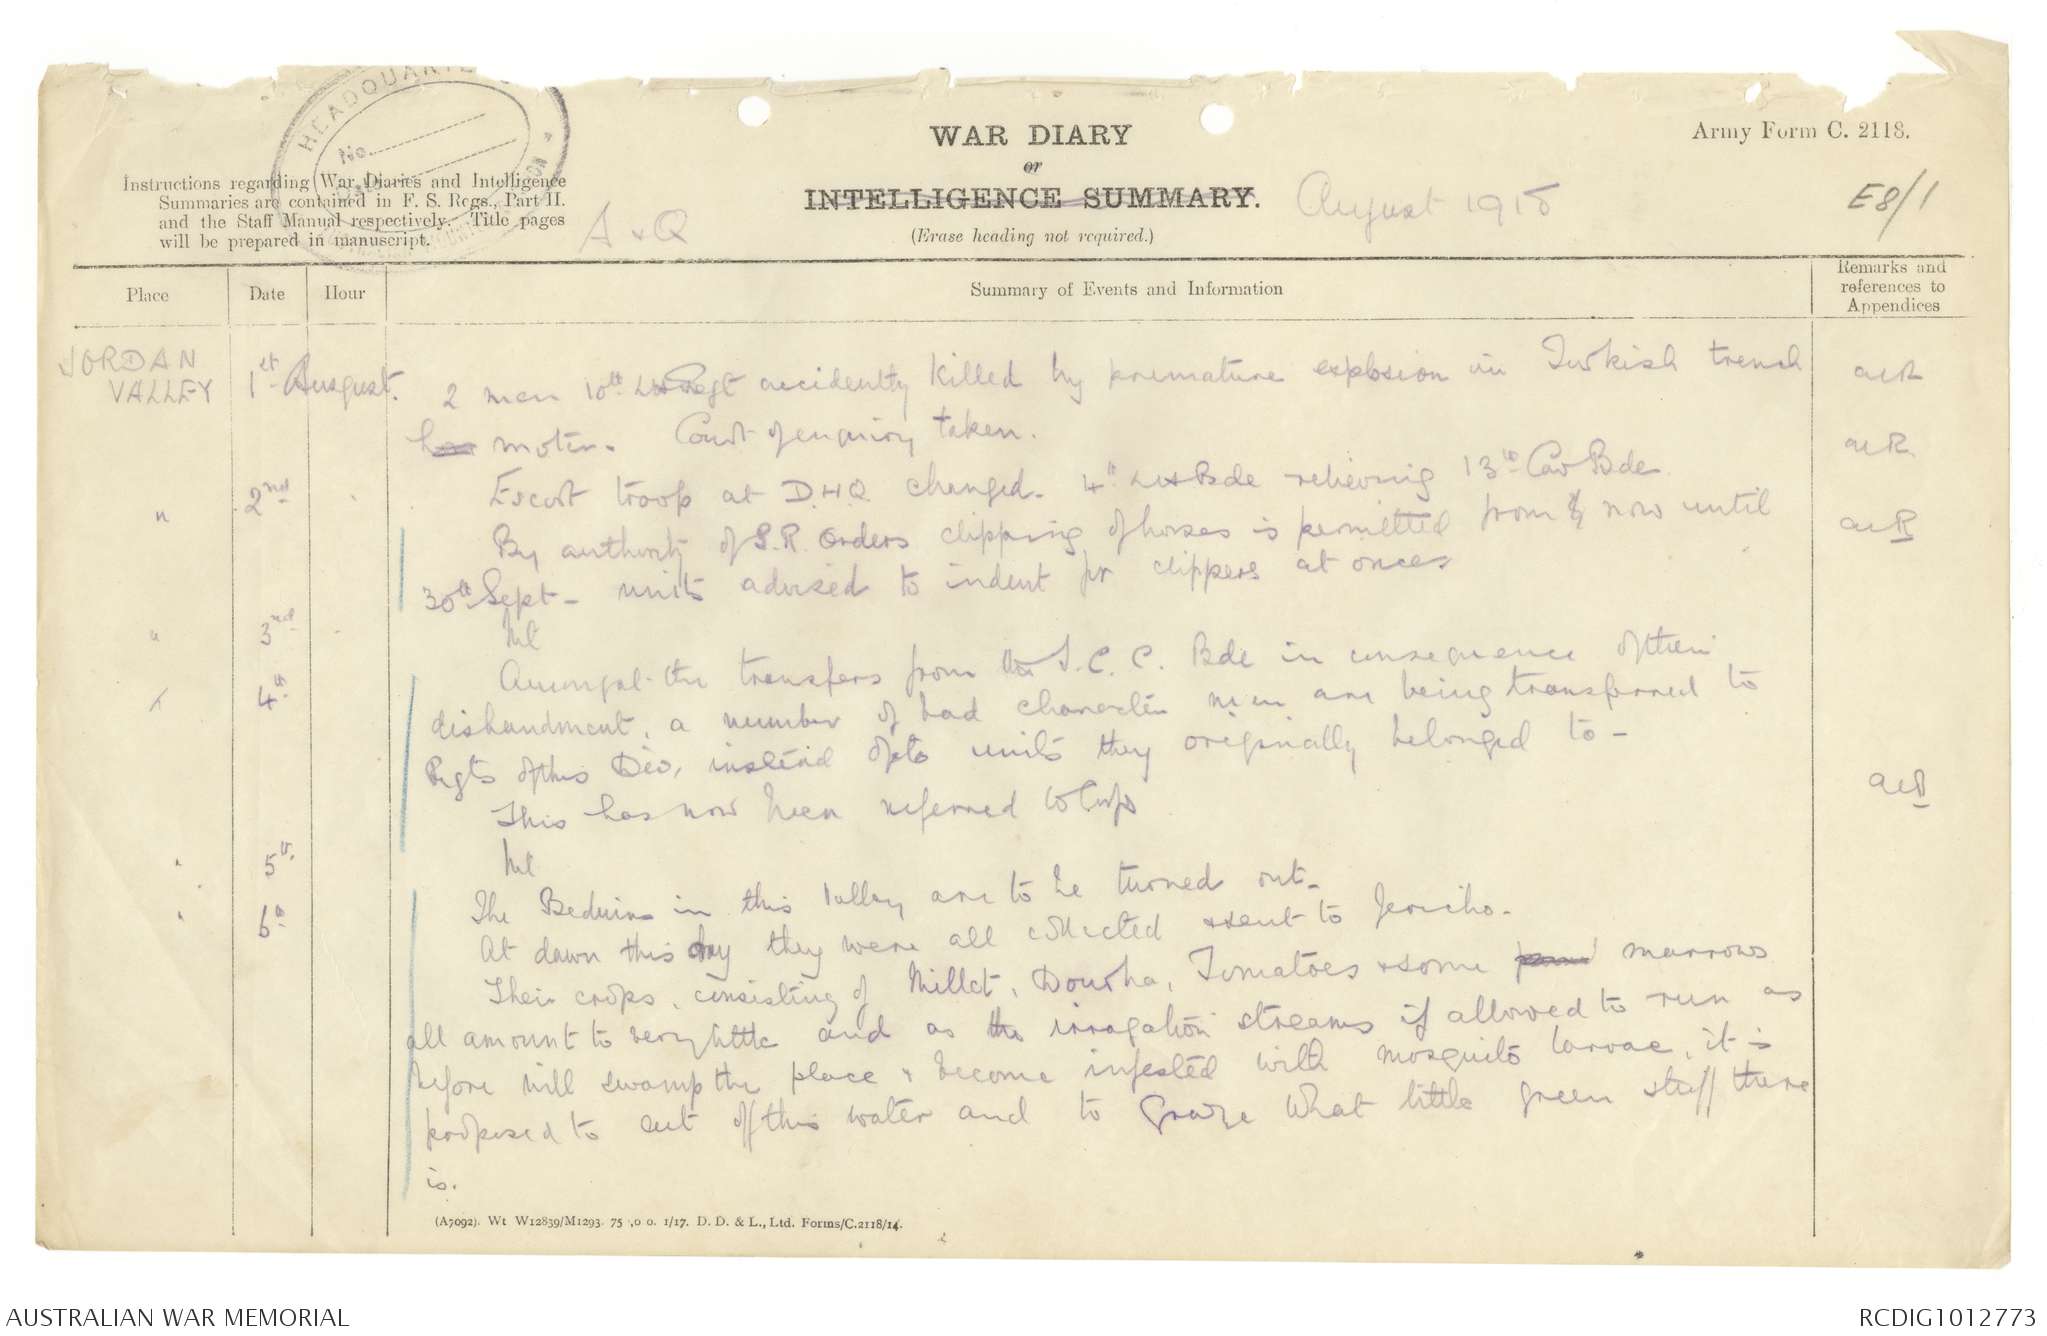 HEADQUARTE
No.
WAR DIARY
or
INTELLIGENCE SUMMARY.
(Erase heading not required.)
Army Form C. 2118.
Instructions regarding War Diaries and Intelligence
Summaries are contained in F. S. Regs., Part II.
and the Staff Manual respectively. Title pages
will be prepared in manuscript.
A & Q
August 1918
E8/1
Place
Date
Hour
Summary of Events and Information
Remarks and
references to
Appendices
JORDAN
VALLEY
1st August.
2 men 10th LH Regt accidently killed by premature explosion in Turkish trench
moter. Court of enquiry taken.
" 2nd Escort troop at D.H.Q. changed. 4th LH Bde relieving 13th Cav Bde
By authority of G.R. Orders clipping of horses is permitted from now until
30th Sept - units advised to indent for clippers at once
" 3rd Nil
" 4th Amongst the transfers from the I.C.C. Bde in consequence of their
disbandment, a number of bad character men are being transferred to
Regts of this Div, instead of to units they originally belonged to -
This has now been referred to Corps
" 5th Nil
" 6th The Beduins in this valley are to be turned out.
At dawn this day they were all collected & sent to Jericho.
Their crops, consisting of Millet, Dourha, Tomatoes & some marrows
all amount to very little and as the irragation streams if allowed to run as
before will swamp the place & become infested with mosquito larvae, it is
proposed to cut off this water and to graze what little green stuff there
is.
(A7092). Wt W12839/M1293. 75 ,0 0. 1/17. D. D. & L., Ltd. Forms/C.2118/14.
AUSTRALIAN WAR MEMORIAL
RCDIG1012773